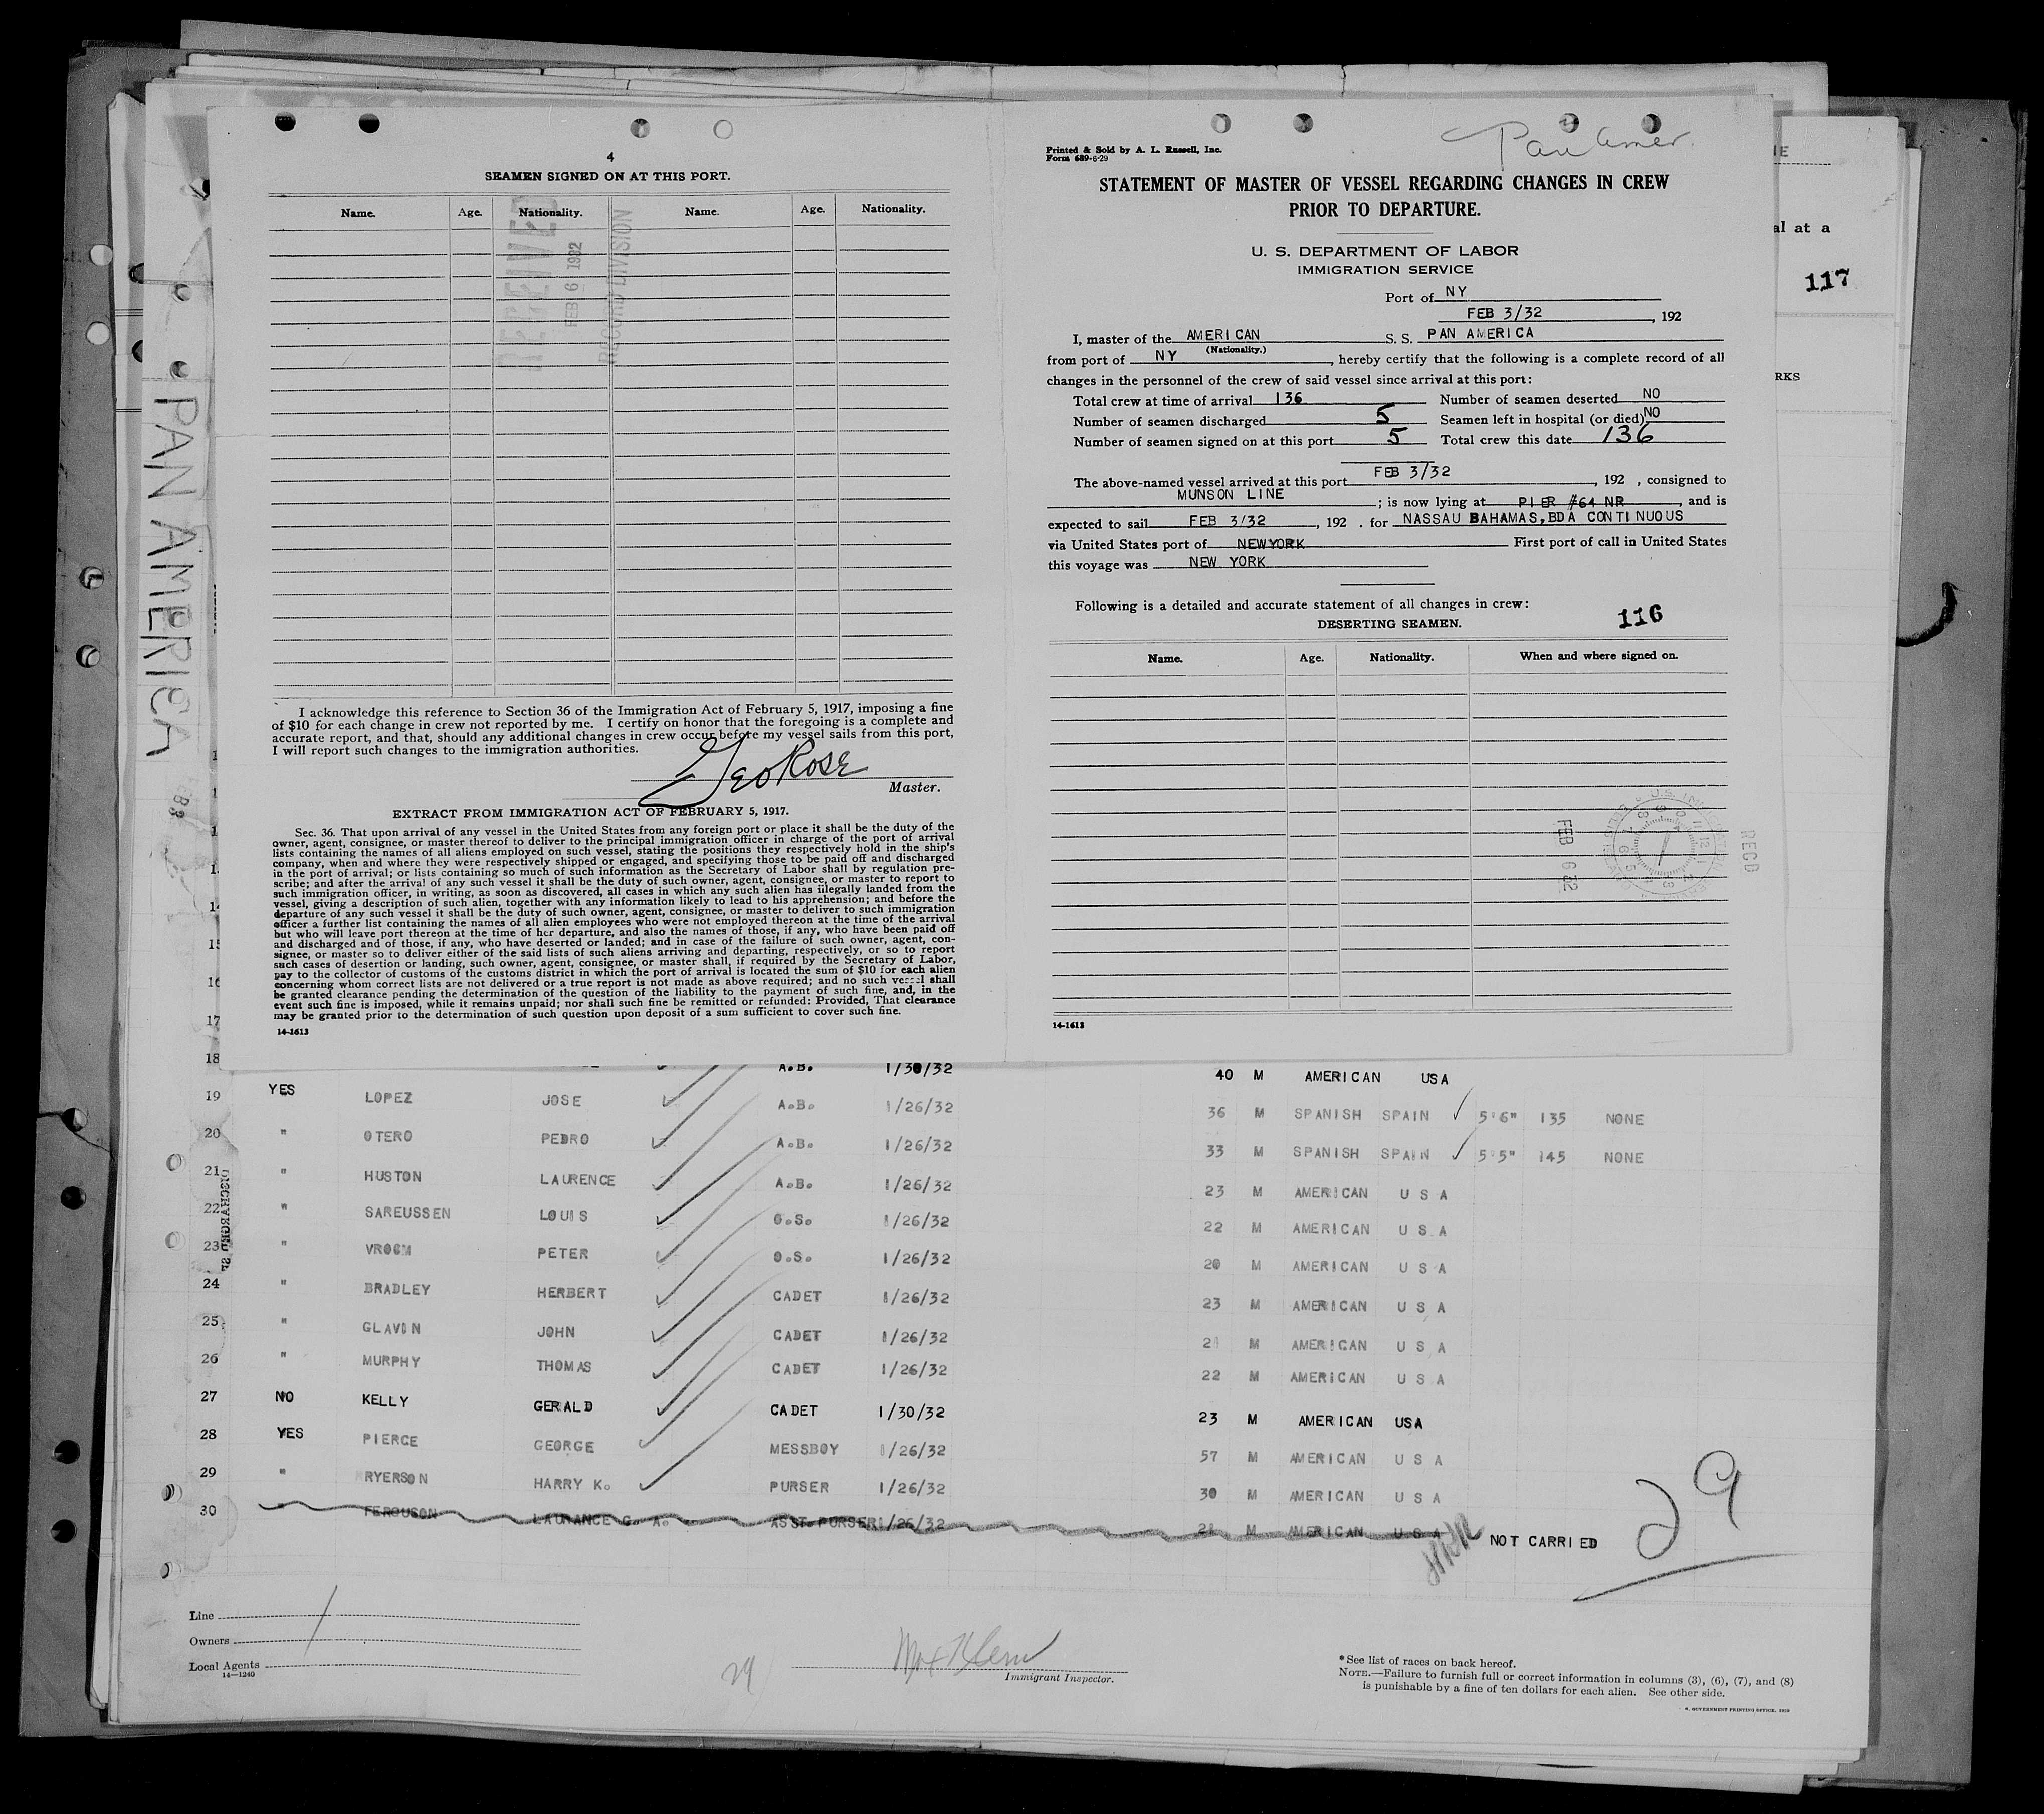 4
SEAMEN SIGNED ON AT THIS PORT.
Name. Age. Nationality. Name. Age. Nationality.
RECEIVED
FEB 6 1932
RECORD DIVISION
I acknowledge this reference to Section 36 of the Immigration Act of February 5, 1917, imposing a fine
of $10 for each change in crew not reported by me. I certify on honor that the foregoing is a complete and
accurate report, and that, should any additional changes in crew occur before my vessel sails from this port,
I will report such changes to the immigration authorities.
Geo Rose
Master.
EXTRACT FROM IMMIGRATION ACT OF FEBRUARY 5, 1917.
Sec. 36. That upon arrival of any vessel in the United States from any foreign port or place it shall be the duty of the
owner, agent, consignee, or master thereof to deliver to the principal immigration officer in charge of the port of arrival
lists containing the names of all aliens employed on such vessel, stating the positions they respectively hold in the ship's
company, when and where they were respectively shipped or engaged, and specifying those to be paid off and discharged
in the port of arrival; or lists containing so much of such information as the Secretary of Labor shall by regulation pre-
scribe; and after the arrival of any such vessel it shall be the duty of such owner, agent, consignee, or master to report to
such immigration officer, in writing, as soon as discovered, all cases in which any such alien has illegally landed from the
vessel, giving a description of such alien, together with any information likely to lead to his apprehension; and before the
departure of any such vessel it shall be the duty of such owner, agent, consignee, or master to deliver to such immigration
officer a further list containing the names of all alien employees who were not employed thereon at the time of the arrival
but who will leave port thereon at the time of her departure, and also the names of those, if any, who have been paid off
and discharged and of those, if any, who have deserted or landed; and in case of the failure of such owner, agent, con-
signee, or master so to deliver either of the said lists of such aliens arriving and departing, respectively, or so to report
such cases of desertion or landing, such owner, agent, consignee, or master shall, if required by the Secretary of Labor,
pay to the collector of customs of the customs district in which the port of arrival is located the sum of $10 for each alien
concerning whom correct lists are not delivered or a true report is not made as above required; and no such vessel shall
be granted clearance pending the determination of the question of the liability to the payment of such fine, and, in the
event such fine is imposed, while it remains unpaid; nor shall such fine be remitted or refunded: Provided, That clearance
may be granted prior to the determination of such question upon deposit of a sum sufficient to cover such fine.
14-1613
Printed & Sold by A. L. Russell, Inc.
Form 689-6-29
Pan Amer.
STATEMENT OF MASTER OF VESSEL REGARDING CHANGES IN CREW
PRIOR TO DEPARTURE.
U. S. DEPARTMENT OF LABOR
IMMIGRATION SERVICE
Port of NY
FEB 3/32, 192
I, master of the AMERICAN S. S. PAN AMERICA
(Nationality.)
from port of NY, hereby certify that the following is a complete record of all
changes in the personnel of the crew of said vessel since arrival at this port:
Total crew at time of arrival 136 Number of seamen deserted NO
Number of seamen discharged 5 Seamen left in hospital (or died) NO
Number of seamen signed on at this port 5 Total crew this date 136
The above-named vessel arrived at this port FEB 3/32, 192 , consigned to
MUNSON LINE; is now lying at PIER #64 NR, and is
expected to sail FEB 3/32, 192 . for NASSAU BAHAMAS, BDA CONTINUOUS
via United States port of NEWYORK First port of call in United States
this voyage was NEW YORK
Following is a detailed and accurate statement of all changes in crew:
DESERTING SEAMEN. 116
Name. Age. Nationality. When and where signed on.
FEB 6 32
RECD
14-1613
al at a
117
RKS
PAN AMERICA
18 A.B. 1/30/32 40 M AMERICAN USA
19 YES LOPEZ JOSE A.B. 1/26/32 36 M SPANISH SPAIN 5'6" 135 NONE
20 " OTERO PEDRO A.B. 1/26/32 33 M SPANISH SPAIN 5'5" 145 NONE
21 " HUSTON LAURENCE A.B. 1/26/32 23 M AMERICAN U S A
22 " SAREUSSEN LOUIS O.S. 1/26/32 22 M AMERICAN U S A
23 " VROOM PETER O.S. 1/26/32 20 M AMERICAN U S A
24 " BRADLEY HERBERT CADET 1/26/32 23 M AMERICAN U S A
25 " GLAVIN JOHN CADET 1/26/32 21 M AMERICAN U S A
26 " MURPHY THOMAS CADET 1/26/32 22 M AMERICAN U S A
27 NO KELLY GERALD CADET 1/30/32 23 M AMERICAN USA
28 YES PIERCE GEORGE MESSBOY 1/26/32 57 M AMERICAN U S A
29 " RYERSON HARRY K. PURSER 1/26/32 30 M AMERICAN U S A
30 " FERGUSON LAURANCE G. A. ASST.PURSER 1/26/32 21 M AMERICAN U S A NOT CARRIED
29
Line
Owners
Local Agents
14—1240
29
Immigrant Inspector.
*See list of races on back hereof.
NOTE.—Failure to furnish full or correct information in columns (3), (6), (7), and (8)
is punishable by a fine of ten dollars for each alien. See other side.